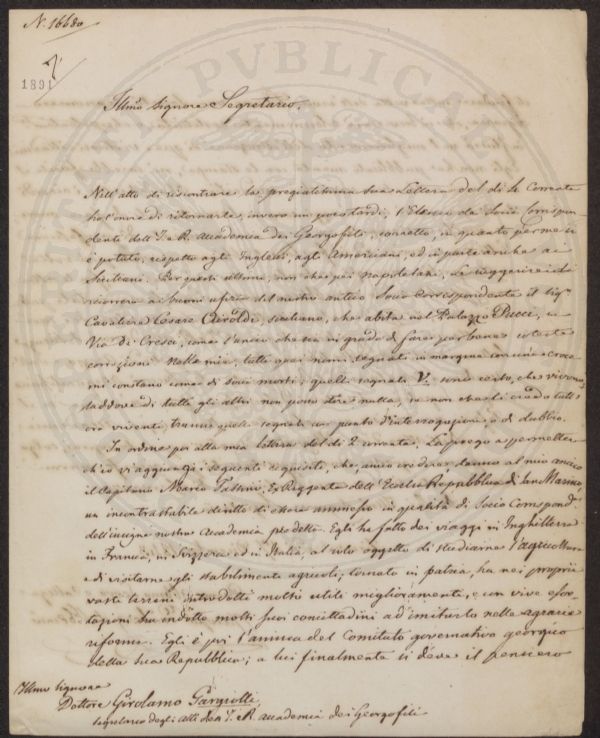 N. 1668a
1891
Illmo Signore Segretario.
Nell'atto di riscontrare la pregiatissima sua Lettera del di 4. Corrente
ho l'onore di ritornarle, invero un poco tardi, l'Elenco de Socii Corrispon
denti dell'I. e R. Accademia dei Georgofili, corretto, in quanto per me si
è potuto, rispetto agli Inglesi, agli Americani, ed in parte anche ai
Siciliani. Per questi ultimi, non che pei Napoletani, Le suggerirei di
ricorrere ai buoni ufizi del nostro antico Socio Corrispondente il Sigr
Cavaliere Cesare Airoldi, siciliano, che abita nel Palazzo Pucci, in
Via di Cresci, come l'unico che sia in grado di fare per bene coteste
correzioni. Nelle mie, tutti quei nomi segnati in margine con una croce
mi constano come di Socii morti; quelli segnati V. sono certo, che vivono,
laddove di tutti gli altri non posso dire nulla, se non che li credo tutt'
ora viventi, tranne quelli segnati con punto d'interrogazione o di dubbio.
In ordine poi alla mia lettera del di 2 corrente, La prego a permettere
ch'io vi aggiunga i seguenti requisiti, che, amio credere, danno al mio amico
il Capitano Marco Tassini, Ex Reggente dell'Eccelsa Repubblica di San Marino,
un incontrastabile diritto di essere ammesso in qualità di Socio Corrispondte
dell'insigne nostra Accademia prodetta. Egli ha fatto dei viaggi in Inghilterra
in Francia, in Svizzera ed in Italia, al solo oggetto di studiarne l'agricoltura
e di visitarne gli stabilimenti agricoli; tornato in patria, ha nei proprii
vasti terreni introdotti molti utili miglioramenti, e con vive esor-
tazioni ha indotto molti suoi concittadini ad imitarlo nelle agrarie
riforme. Egli è poi l'anima del Comitato governativo georgico
della sua Repubblica; a lui finalmente si deve il pensiero
Illmo Signore
Dottore Girolamo Gargiolli,
Segretario degli Atti della I. e R. Accademia dei Georgofili